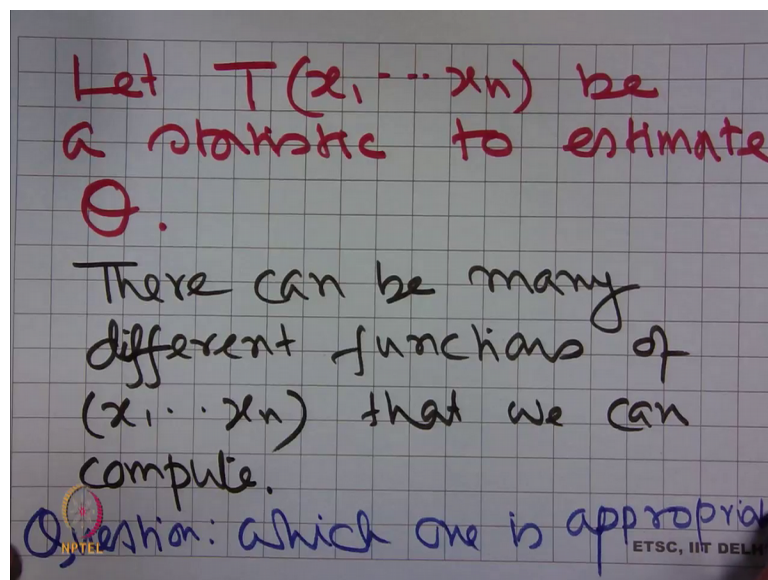 Let T(x₁ ... xn) be
a statistic to estimate
θ.
There can be many
different functions of
(x₁ .. xn) that we can
compute.
Question: which one is appropria
NPTEL
ETSC, IIT DELH